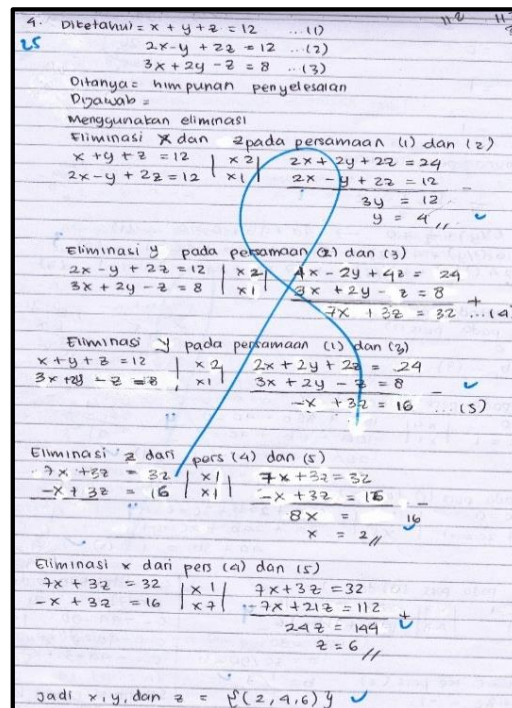 4. Diketahui = x + y + z = 12 ... (1)
25 2x - y + 2z = 12 ... (2)
3x + 2y - z = 8 ... (3)
Ditanya = himpunan penyelesaian
Dijawab =
Menggunakan eliminasi
Eliminasi x dan z pada persamaan (1) dan (2)
x + y + z = 12 | x 2 | 2x + 2y + 2z = 24
2x - y + 2z = 12 | x 1 | 2x - y + 2z = 12 -
3y = 12
y = 4 //
Eliminasi y pada persamaan (2) dan (3)
2x - y + 2z = 12 | x 2 | 4x - 2y + 4z = 24
3x + 2y - z = 8 | x 1 | 3x + 2y - z = 8 +
7x + 3z = 32 ... (4)
Eliminasi y pada persamaan (1) dan (3)
x + y + z = 12 | x 2 | 2x + 2y + 2z = 24
3x + 2y - z = 8 | x 1 | 3x + 2y - z = 8 -
-x + 3z = 16 ... (5)
Eliminasi z dari pers (4) dan (5)
7x + 3z = 32 | x 1 | 7x + 3z = 32
-x + 3z = 16 | x 1 | -x + 3z = 16 -
8x = 16
x = 2 //
Eliminasi x dari pers (4) dan (5)
7x + 3z = 32 | x 1 | 7x + 3z = 32
-x + 3z = 16 | x 7 | -7x + 21z = 112 +
24z = 144
z = 6 //
Jadi x, y, dan z = {(2, 4, 6)}